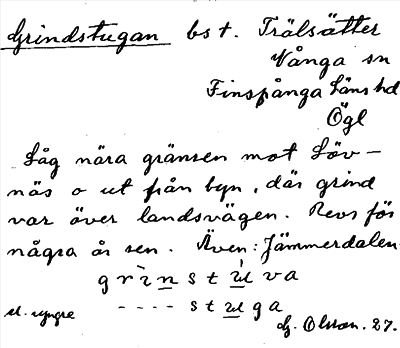 Grindstugan bst. Trälsätter
Vånga sn
Finspånga läns hd
Ögl
Låg nära gränsen mot Löv-
näs o ut från byn, där grind
var över landsvägen. Revs för
några år sen. Även: Jämmerdalen.
grìnstúva
---- stuga
yngre
G. Olsson. 27.